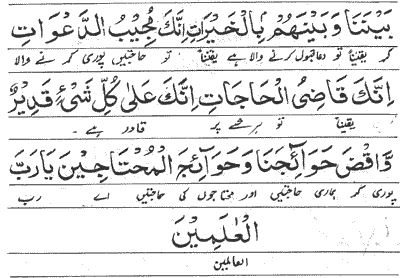 بَيْنَنَا وَبَيْنَهُمْ بِالْخَيْرَاتِ اِنَّكَ مُجِيْبُ الدَّعْوَاتِ
کر یقیناً تو دعا قبول کرنے والا ہے یقیناً تو حاجتیں پوری کر نے والا
اِنَّكَ قَاضِیُ الْحَاجَاتِ اِنَّكَ عَلٰى كُلِّ شَیْءٍ قَدِيْرٌ
یقیناً تو ہر شے پر قادر ہے ۔
وَّاقْضِ حَوَآئِجَنَا وَحَوَآئِجَ الْمُحْتَاجِيْنَ يَارَبَّ
پوری کر ہماری حاجتیں اور محتاجوں کی حاجتیں اے رب
الْعٰلَمِيْنَ
العالمین